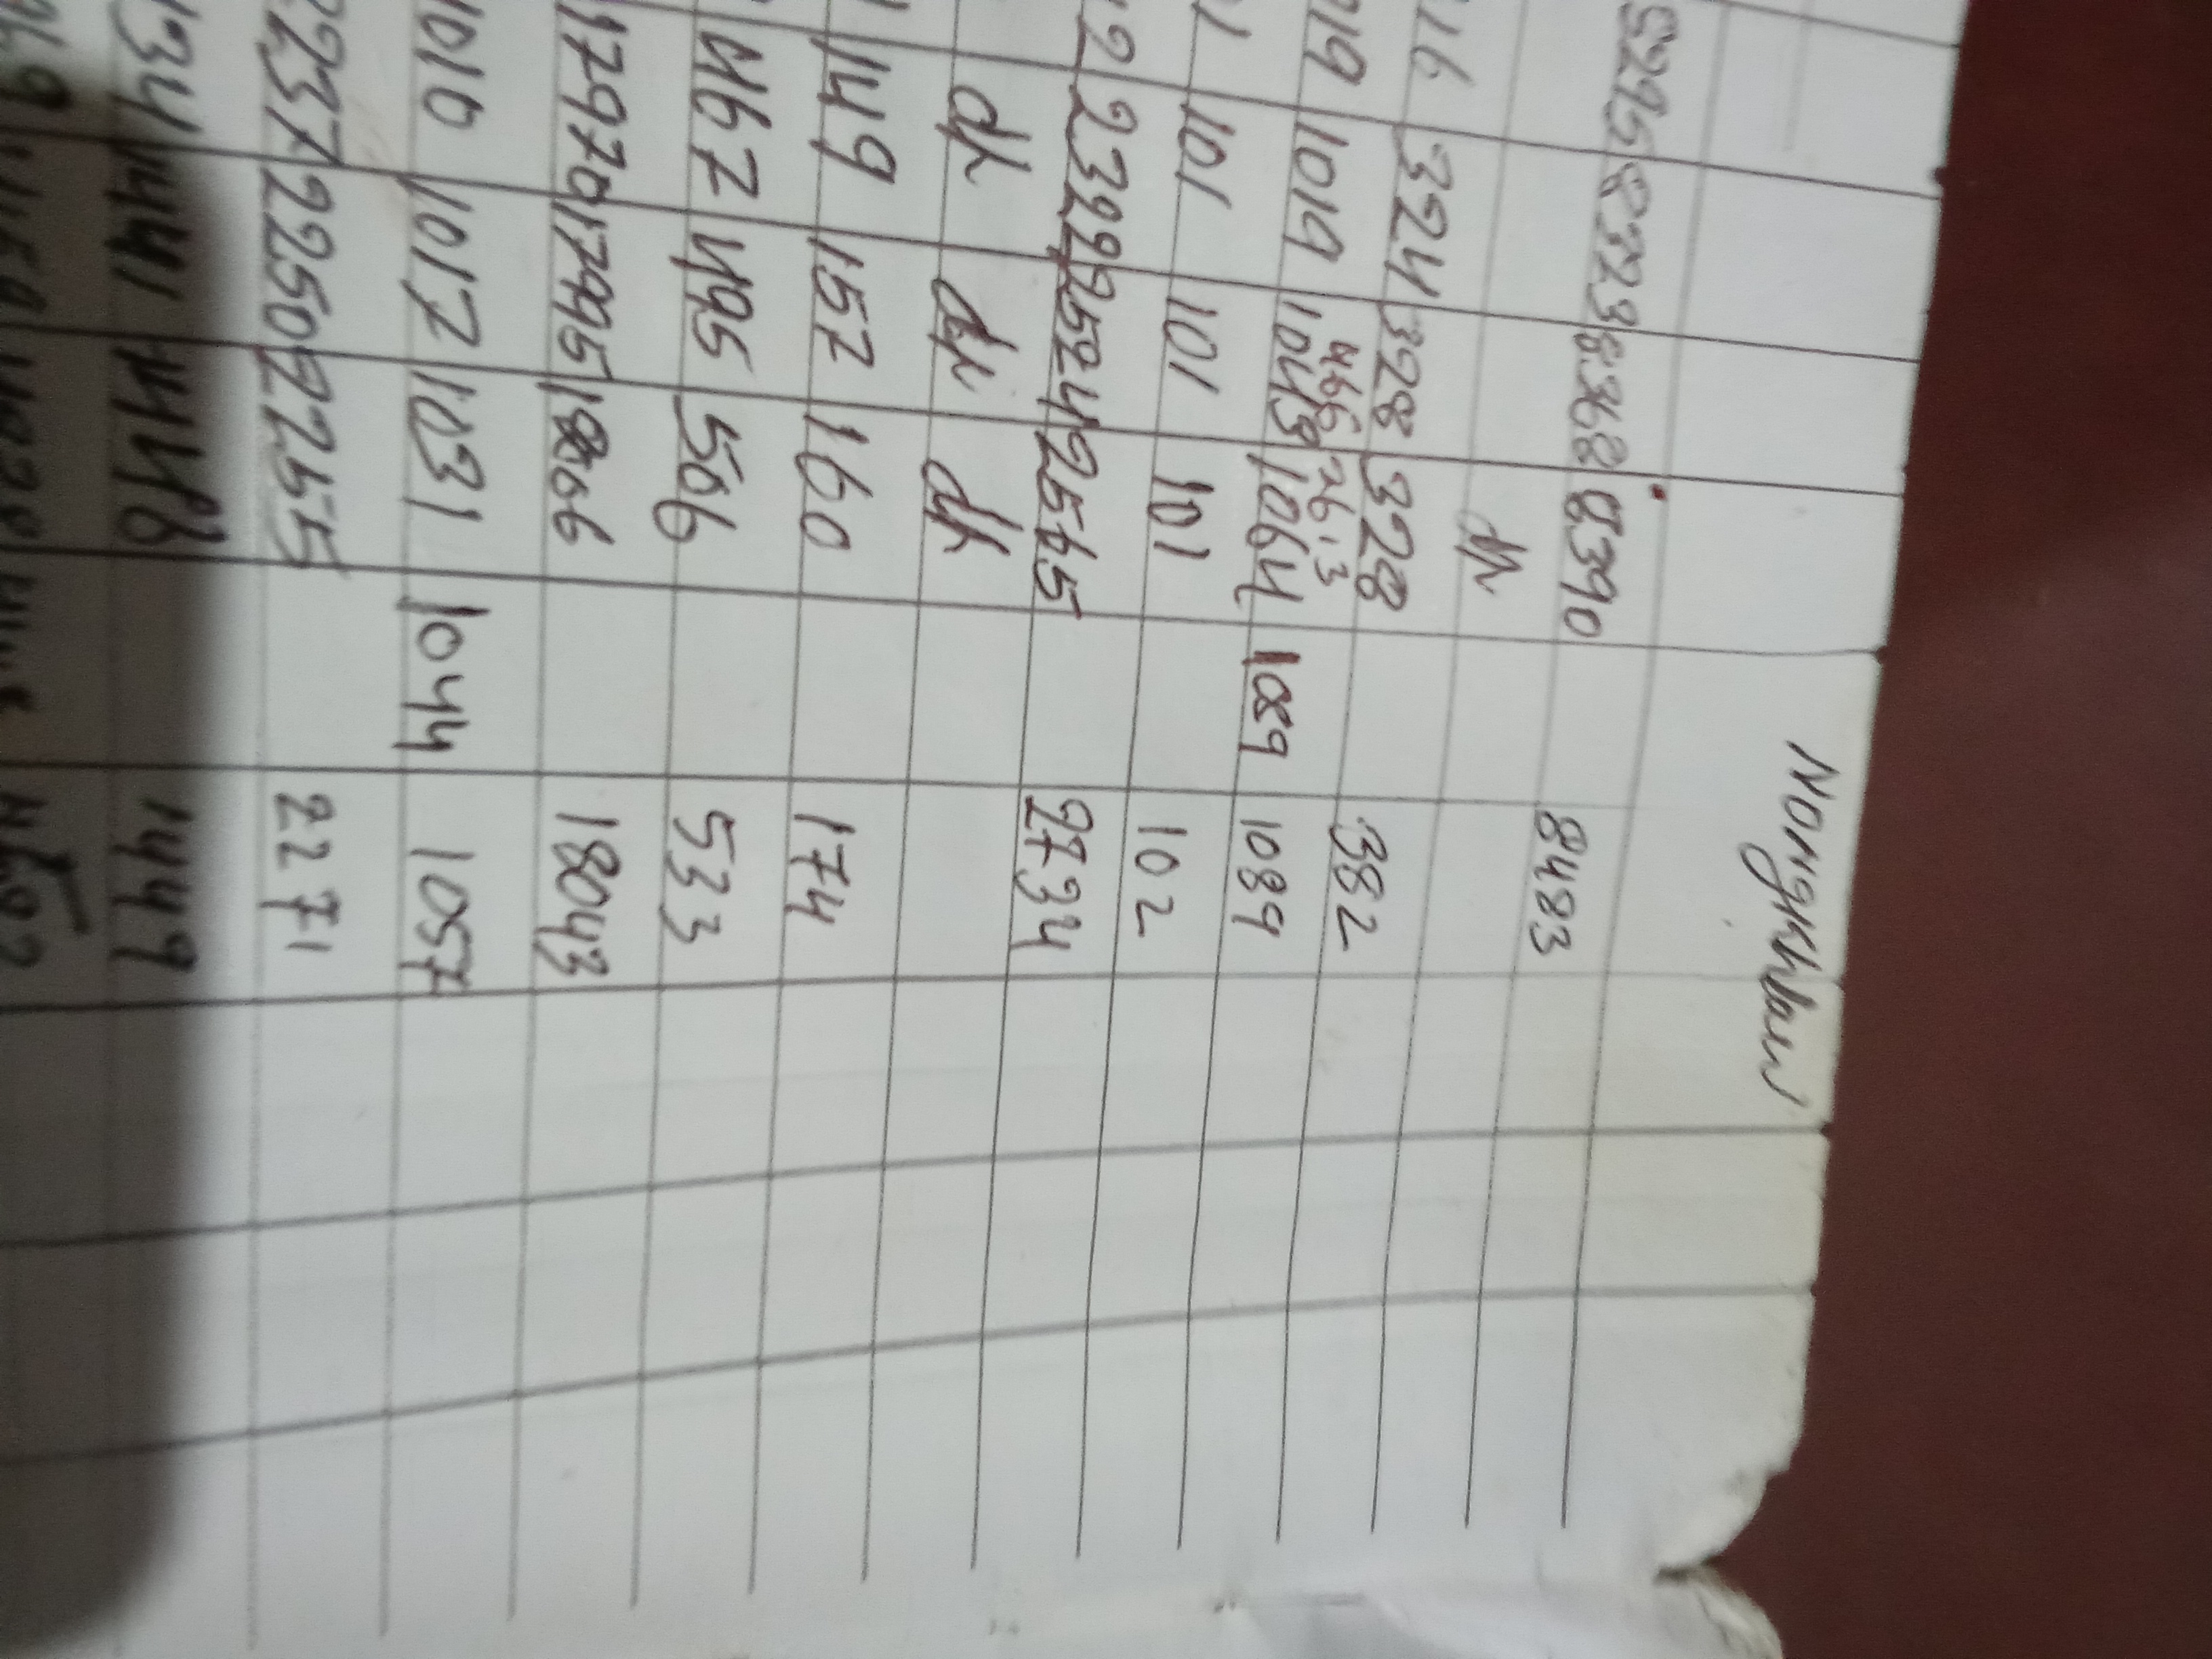 Nongkhlaw
8295 8323 8368 8390 8483
16 324 328 328 382
466 26.3
019 1019 1064 1089 1089
1 101 101 101 102
2 2399 2524 2565 2734
dh dh dh
149 157 160 174
467 495 506 533
17970 17995 18043
1010 1017 1031 1044 1057
2237 2250 2255 2271
1441 1449